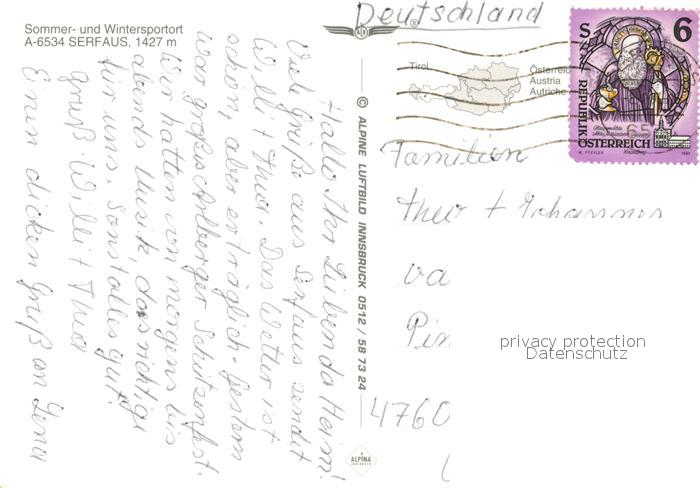 Sommer- und Wintersportort
A-6534 SERFAUS, 1427 m
Hallo Ihr Lieben da Heim!
Viele Grüße aus Serfaus sendet
Willi + Thea. Das Wetter ist
schön, aber erträglich. Gestern
war großes Schützenfest.
Wir hatten von morgens bis
abend Musik, das richtige
für uns. Sonst alles gut!
Gruß Willi + Thea
Einen dicken Gruß an Lena
© ALPINE LUFTBILD INNSBRUCK 0512 / 58 73 24
ALPINA
INNSBRUCK
Deutschland
Tirol
Österreich
Austria
Autriche
S 6
REPUBLIK
ÖSTERREICH
Familien
Theo + Johannes
va
Pin
4760
privacy protection
Datenschutz